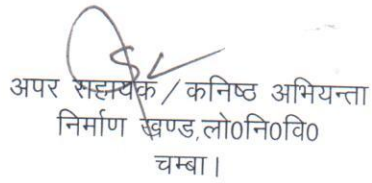 अपर सहायक / कनिष्ठ अभियन्ता
निर्माण खण्ड,लो0नि0वि0
चम्बा।